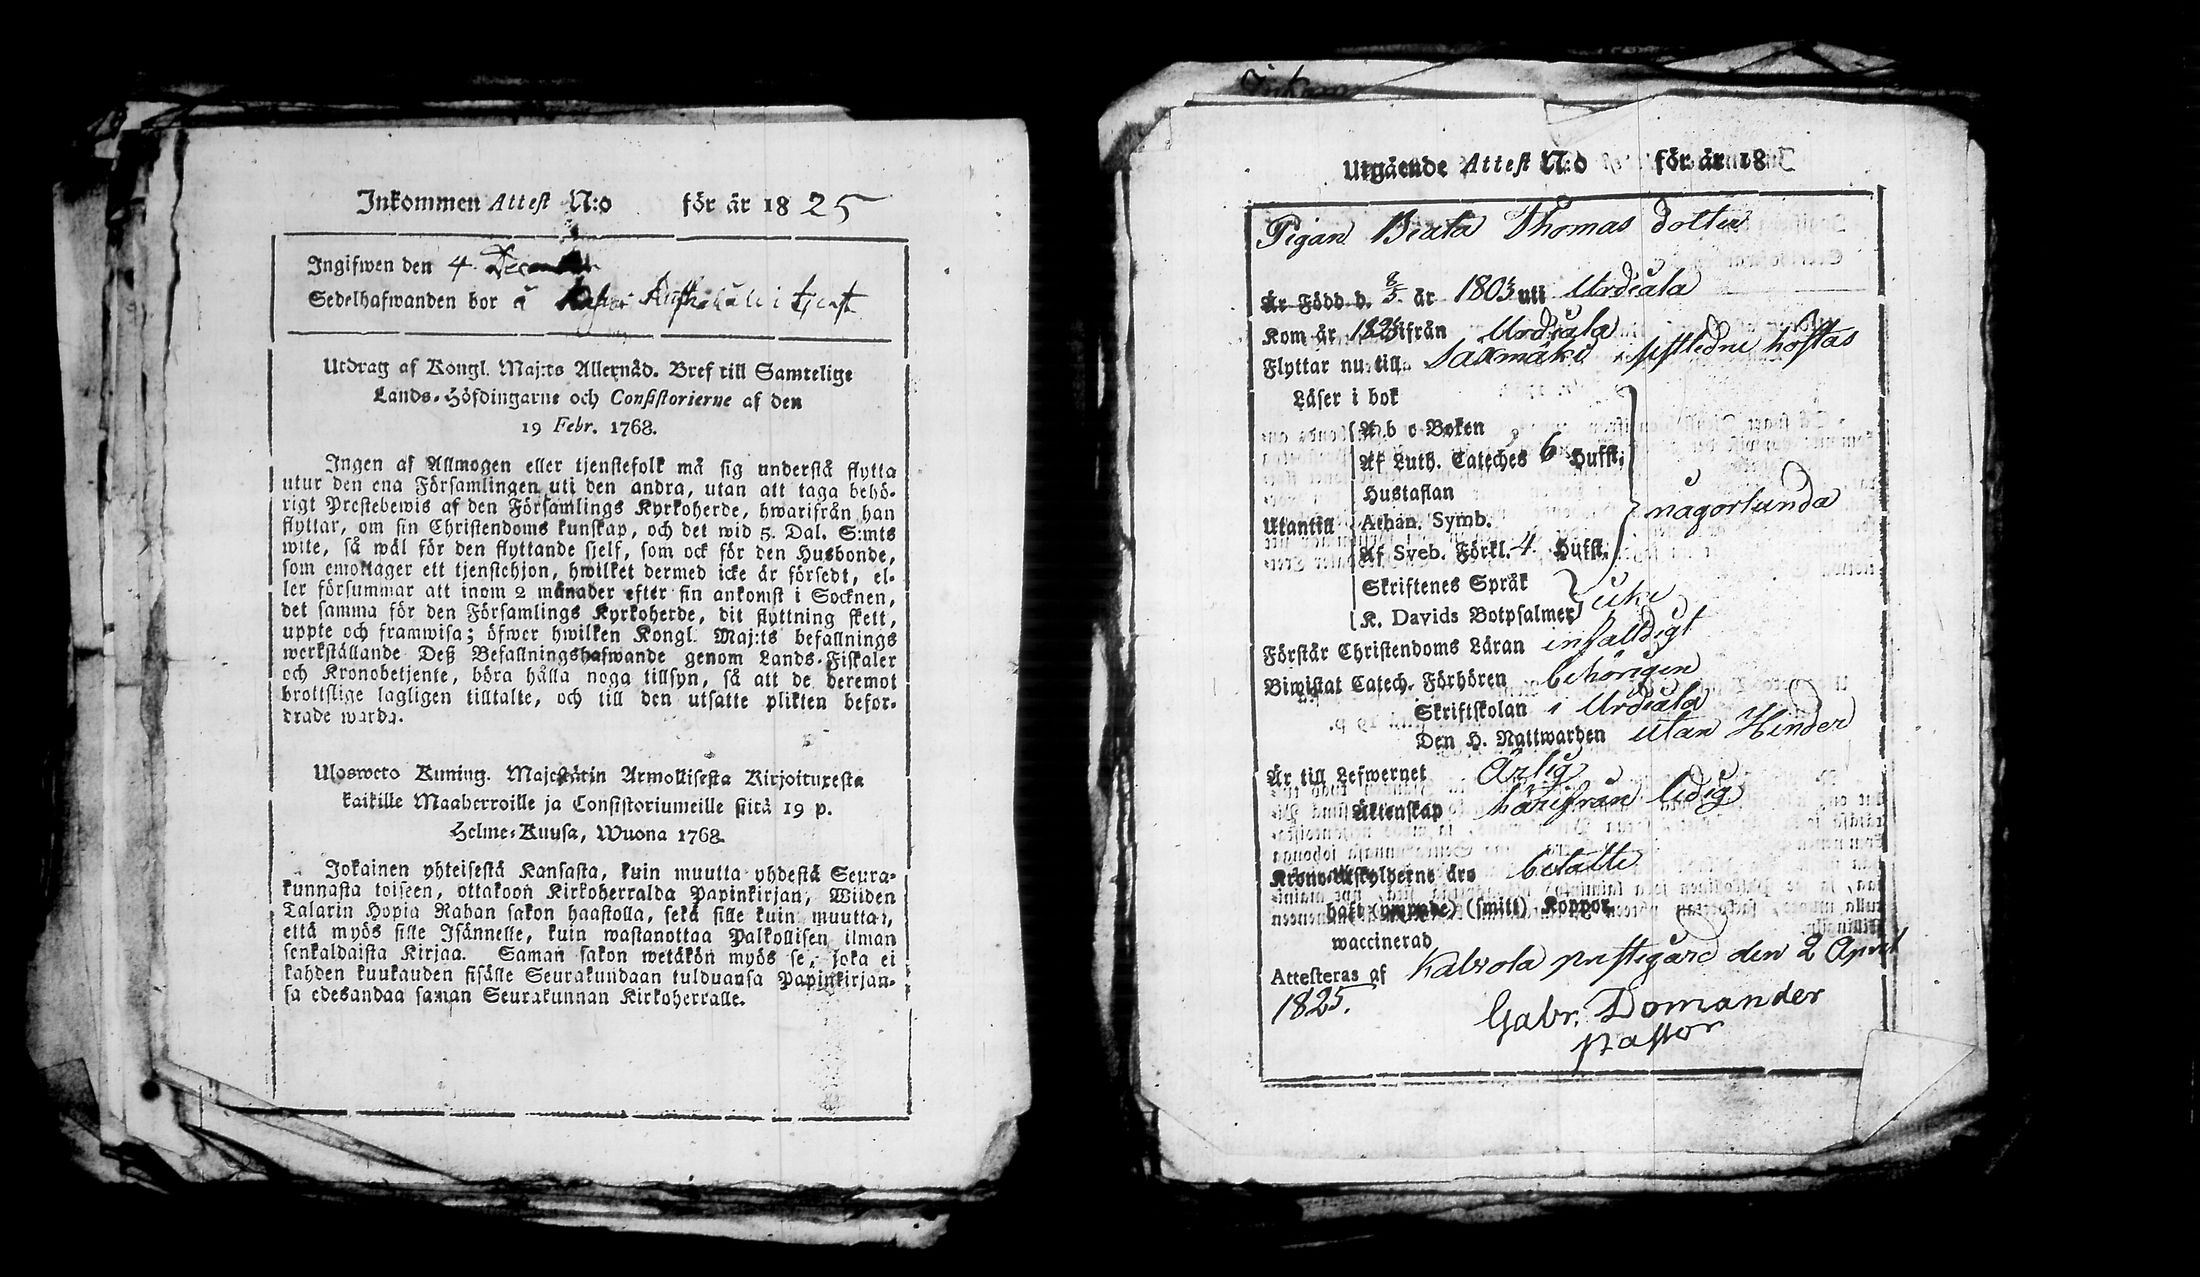 Inkommen Attest N:o för år 1825
Ingifwen den 4 December
Sedelhafwanden bor å i tjenst
Utdrag af Kongl. Maj:ts Allernåd. Bref till Samtelige
Lands-Höfdingarne och Consistorierne af den
19 Febr. 1768.
Ingen af Allmogen eller tjenstefolk må sig understå flytta
utur den ena Församlingen uti den andra, utan att taga behö-
rigt Prestebewis af den Församlings Kyrkoherde, hwarifrån han
flyttar, om sin Christendoms kunskap, och det wid 5. Dal. S:mts
wite, så wäl för den flyttande sjelf, som ock för den Husbonde,
som emottager ett tjenstehjon, hwilket dermed icke är försedt, el-
ler försummar att inom 2 månader efter sin ankomst i Socknen,
det samma för den Församlings Kyrkoherde, dit flyttning skett,
uppte och framwisa; öfwer hwilken Kongl. Maj:ts befallnings
werkställande Deß Befallningshafwande genom Lands-Fiskaler
och Kronobetjente, böra hålla noga tillsyn, så att de deremot
brottslige lagligen tilltalte, och till den utsatte plikten befor-
drade warda.
Ulosweto Kuning. Majestätin Armollisesta Kirjoituxesta
kaikille Maaherroille ja Consistoriumeille siitä 19 p.
Helme-Kuusa, Wuona 1768.
Jokainen yhteisestä Kansasta, kuin muutta yhdestä Seura-
kunnasta toiseen, ottakoon Kirkoherralda Papinkirjan, Wiiden
Talarin Hopia Rahan sakon haastolla, sekä sille kuin muuttaa,
että myös sille Isännelle, kuin wastanottaa Palkollisen ilman
senkaldaista Kirjaa. Saman sakon wetäkön myös se, joka ei
kahden kuukauden sisälle Seurakundaan tulduansa Papinkirjan-
sa edesandaa saman Seurakunnan Kirkoherralle.
Utgående Attest N:o för år 18
Pigan Beata Thomas dotter
Är Född d. 8/3 är 1803 uti Urdiala
Kom år ifrån Urdiala
Flyttar nu till Saxmäki sistledne höstas
Läser i bok
A b c-Boken
Af Luth. Cateches 6 Hufst.
Hustaflan
Utantill Athan. Symb. någorlunda
Af Sveb. Förkl. 4 Hufst.
Skriftenes Språk
K. Davids Botpsalmer icke
Förstår Christendoms Läran enfaldigt
Biwistat Catech. Förhören behörigen
Skriftskolan i Urdiala
Den H. Nattwarden utan Hinder
Är till Lefwernet Ärlig
Äktenskap härifrån ledig
Krono-Utskylderne äro betalte
haft (ympade) (smitt) Koppor
waccinerad
Attesteras af Kalvola prestegård den 2 April
1825.
Gabr. Domander
Pastor